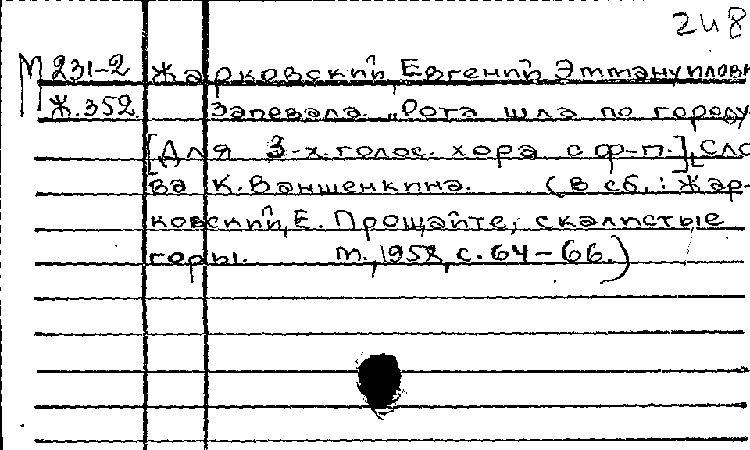 248
М 231-2 Жарковский, Евгений Эммануилович
Ж.352 Запевала "Рота шла по городу
[Для 3-х.голос. хора с ф-п.], Сло-
ва К. Ваншенкина. (в сб.: Жар-
ковский, Е. Прощайте, скалистые
горы. М., 1958, с. 64-66.)